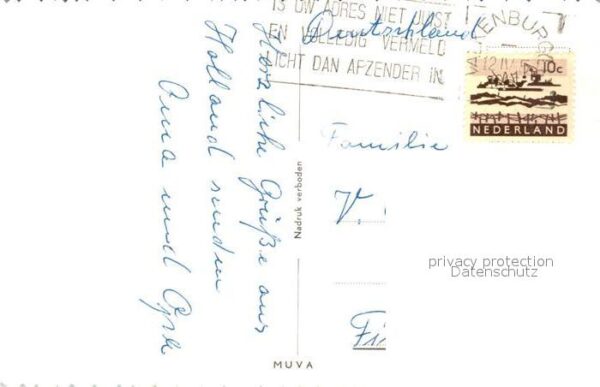 IS UW ADRES NIET JUIST
EN VOLLEDIG VERMELD
LICHT DAN AFZENDER IN
Deutschland
10c
NEDERLAND
Herzliche Grüße aus
Holland senden
Oma und Opa
Nadruk verboden
Familie
V.
privacy protection
Datenschutz
MUVA